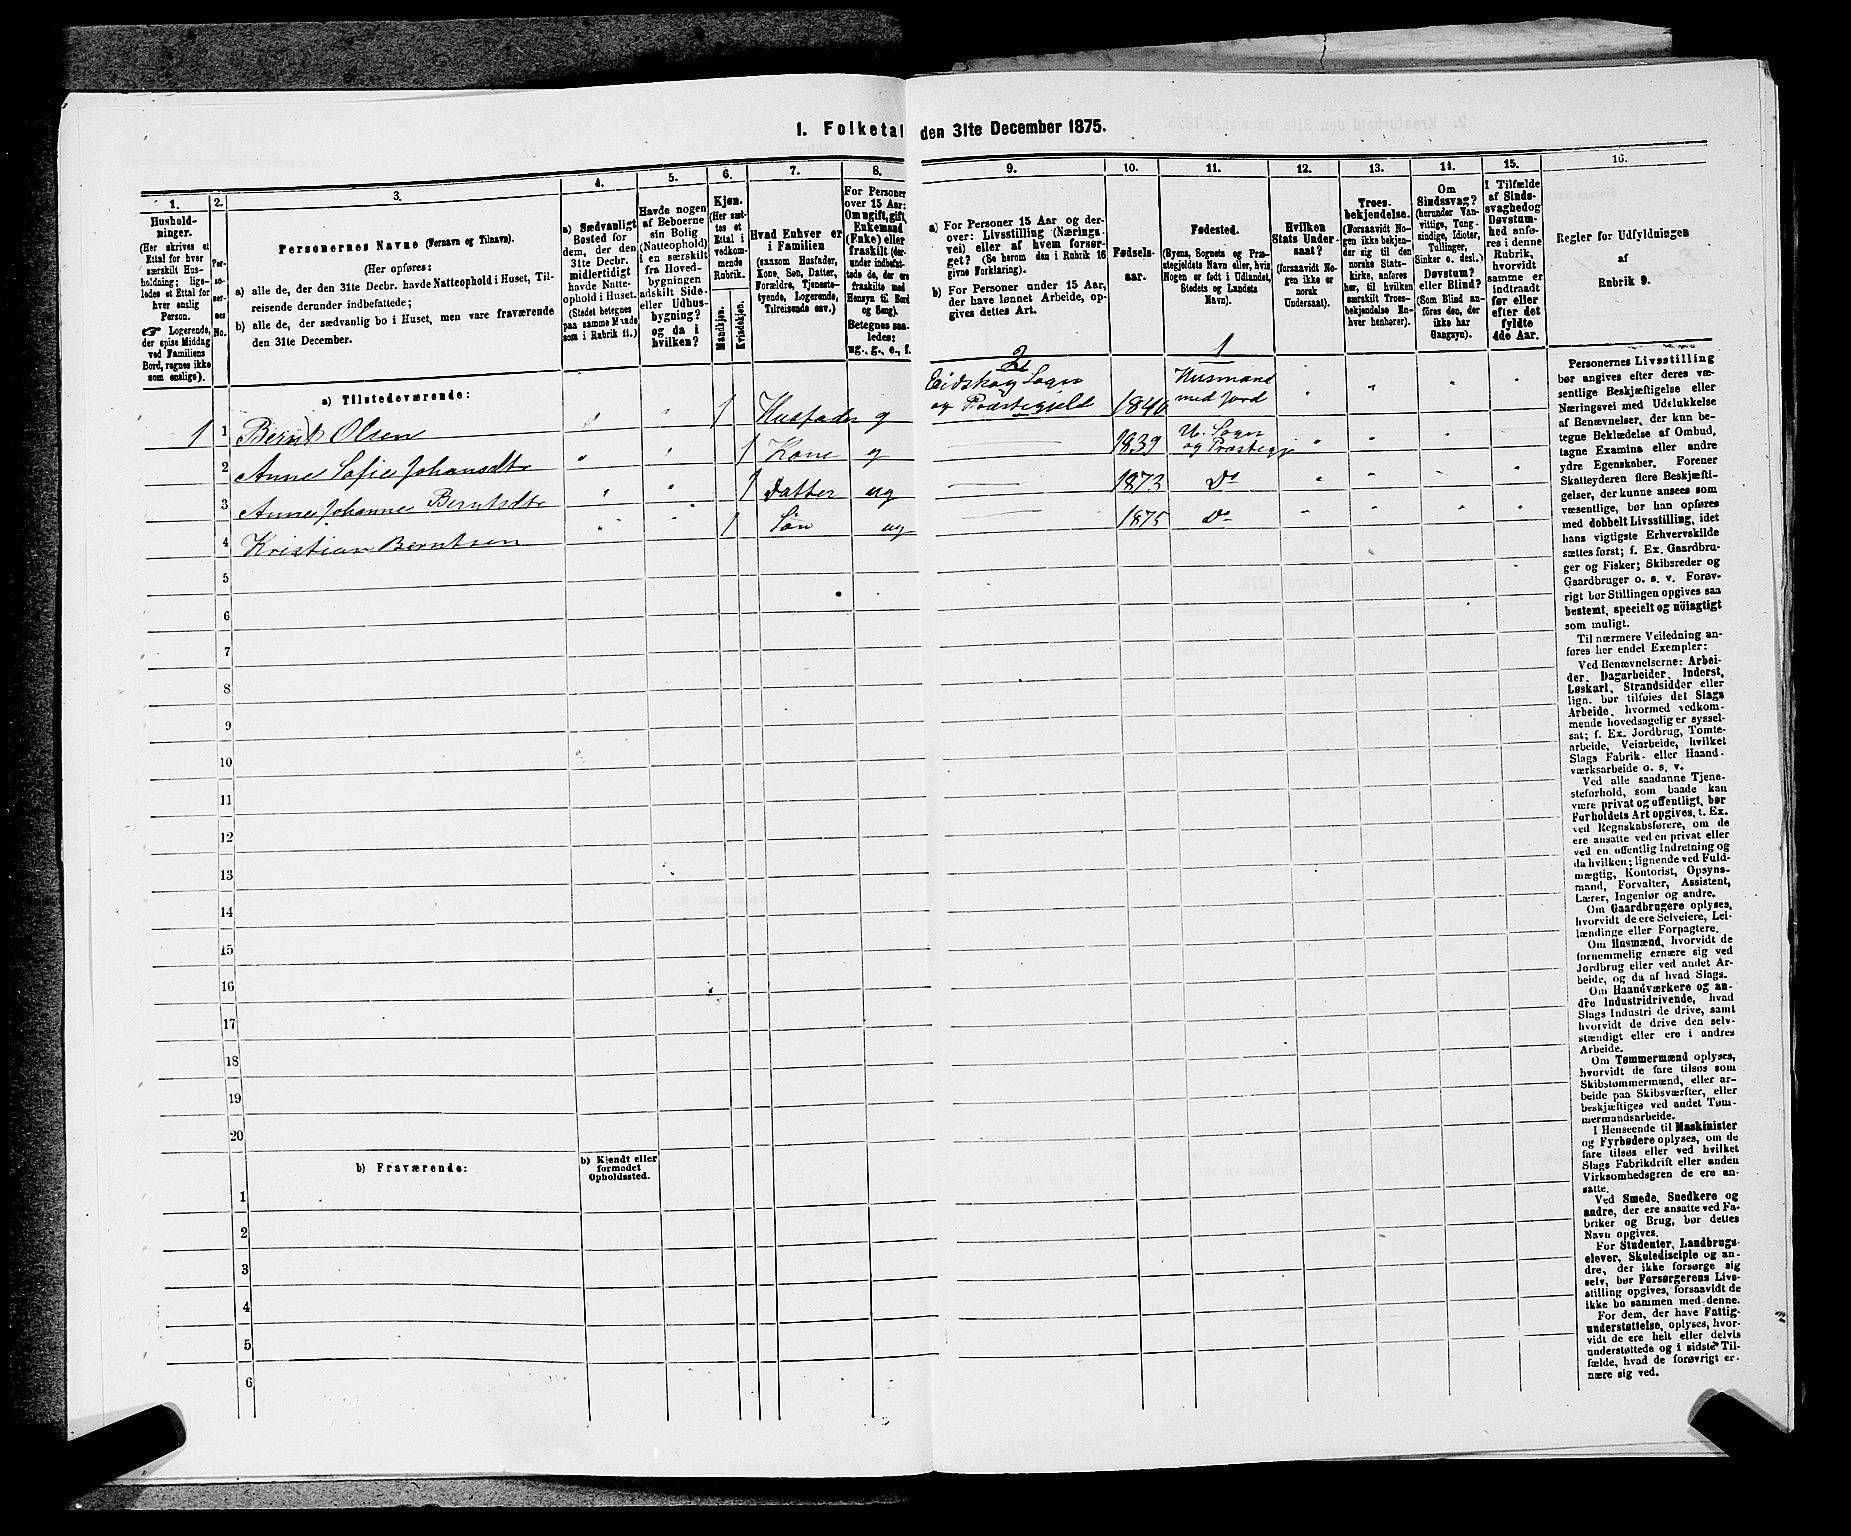 1. Folketal den 31te December 1875.
1.
Hushold-
ninger.
(Her skrives et
Ettal for hver
særskilt Hus-
holdning; lige-
ledes et Ettal for
hver enslig
Person.
☞ Logerende,
der spise Middag
ved Familiens
Bord, regnes ikke
som enslige).
2.
Per-
so-
ner-
nes
No.
3.
Personernes Navne (Fornavn og Tilnavn).
(Her opføres:
a) alle de, der den 31te Decbr. havde Natteophold i Huset, Til-
reisende derunder indbefattede;
b) alle de, der sædvanlig bo i Huset, men vare fraværende
den 31te December.
4.
a) Sædvanligt
Bosted for
dem, der den
31te Decbr.
midlertidigt
havde Natte-
ophold i Huset.
(Stedet betegnes
paa samme Maade
som i Rubrik 11.)
5.
Havde nogen
af Beboerne
sin Bolig
(Natteophold)
i en særskilt
fra Hoved-
bygningen
adskilt Side-
eller Udhus-
bygning?
og da i
hvilken?
6.
Kjøn.
(Her sæt-
tes et
Ettal i
vedkom-
mende
Rubrik.
Mandkjøn.
Kvindekjøn.
7.
Hvad Enhver er
i Familien
(saasom Husfader,
Kone, Søn, Datter,
Forældre, Tjeneste-
tyende, Logerende,
Tilreisende osv.)
8.
For Personer
over 15 Aar:
Om ugift, gift,
Enkemand
(Enke) eller
fraskilt (der-
under indbefat-
tede de, der ere
fraskilte med
Hensyn til Bord
og Seng).
Betegnes saa-
ledes:
ug., g., e., f.
9.
a) For Personer 15 Aar og der-
over: Livsstilling (Nærings-
vei) eller af hvem forsør-
get? (Se herom den i Rubrik 16
givne Forklaring).
b) For Personer under 15 Aar,
der have lønnet Arbeide, op-
gives dettes Art.
10.
Fødsels-
aar.
11.
Fødested.
(Byens, Sognets og Præ-
stegjeldets Navn eller, hvis
Nogen er født i Udlandet,
Stedets og Landets
Navn).
12.
Hvilken
Stats Under-
saat?
(forsaavidt No-
gen ikke er
norsk
Undersaat).
13.
Troes-
bekjendelse.
(Forsaavidt No-
gen ikke bekjen-
der sig til den
norske Stats-
kirke, anføres
her, til hvilken
særskilt Troes-
bekjendelse En-
hver henhører).
14.
Om
Sindssvag?
(herunder Van-
vittige, Tung-
sindige, Idioter,
Tullinger,
Sinker o. desl.)
Døvstum?
eller Blind?
(Som Blind an-
føres den, der
ikke har
Gangsyn).
15.
I Tilfælde
af Sinds-
svaghed og
Døvstum-
hed anfø-
res i denne
Rubrik,
hvorvidt
samme er
indtraadt
før eller
efter det
fyldte
4de Aar.
16.
Regler for Udfyldningen
af
Rubrik 9.
2 1
a) Tilstedeværende:
1 1 Bernt Olsen " " 1 Husfader g Eidskog Sogn og Præstegjeld 1840 Husmand med Jord " " " "
2 Anne Sofie Johansdtr " " 1 Kone g 1839 U. Sogn og Præstegj " " "
3 Anne Johanne Berntsdtr " " 1 Datter ug 1873 Do " " " "
4 Kristian Berntsen " " 1 Søn ug 1875 Do " " " "
5
6
7
8
9
10
11
12
13
14
15
16
17
18
19
20
b) Fraværende:
b) Kjendt eller
formodet
Opholdssted.
1
2
3
4
5
6
Personernes Livsstilling
bør angives efter deres væ-
sentlige Beskjæftigelse eller
Næringsvei med Udelukkelse
af Benævnelser, der kun be-
tegne Beklædelse af Ombud,
tagne Examina eller andre
ydre Egenskaber. Forener
Skatteyderen flere Beskjæfti-
gelser, der kunne ansees som
væsentlige, bør han opføres
med dobbelt Livsstilling, idet
hans vigtigste Erhvervskilde
sættes først; f. Ex. Gaardbru-
ger og Fisker; Skibsreder og
Gaardbruger o. s. v. Forøv-
rigt bør Stillingen opgives saa
bestemt, specielt og nöiagtigt
som muligt.
Til nærmere Veiledning an-
føres her endel Exempler:
Ved Benævnelserne: Arbei-
der, Dagarbeider, Inderst,
Løskarl, Strandsidder eller
lign. bør tilføies det Slags
Arbeide, hvormed vedkom-
mende hovedsagelig er syssel-
sat; f. Ex. Jordbrug, Tomte-
arbeide, Veiarbeide, hvilket
Slags Fabrik- eller Haand-
værksarbeide o. s. v.
Ved alle saadanne Tjene-
steforhold, som baade kan
være privat og offentligt, bør
Forholdets Art opgives, t. Ex.
ved Regnskabsførere, om de
ere ansatte ved en privat eller
ved en offentlig Indretning og
da hvilken; lignende ved Fuld-
mægtig, Kontorist, Opsyns-
mand, Forvalter, Assistent,
Lærer, Ingeniør og andre.
Om Gaardbrugere oplyses,
hvorvidt de ere Selveiere, Lei-
lændinge eller Forpagtere.
Om Husmænd, hvorvidt de
fornemmelig ernære sig ved
Jordbrug eller ved andet Ar-
beide, og da af hvad Slags.
Om Haandværkere og an-
dre Industridrivende, hvad
Slags Industri de drive, samt
hvorvidt de drive den selv-
stændigt eller ere i andres
Arbeide.
Om Tømmermænd oplyses,
hvorvidt de fare tilsøs som
Skibstømmermænd, eller ar-
beide paa Skibsværfter, eller
beskjæftiges ved andet Tøm-
mermandsarbeide.
I Henseende til Maskinister
og Fyrbødere oplyses, om de
fare tilsøs eller ved hvilket
Slags Fabrikdrift eller anden
Virksomhedsgren de ere an-
satte.
Ved Smede, Snedkere og
andre, der ere ansatte ved Fa-
briker og Brug, bør dettes
Navn opgives.
For Studenter, Landbrugs-
elever, Skoledisciple og an-
dre, der ikke forsørge sig
selv, bør Forsørgerens Livs-
stilling opgives, forsaavidt de
ikke bo sammen med denne.
For dem, der have Fattig-
understøttelse, oplyses, hvor-
vidt de ere helt eller delvis
understøttede og i sidste Til-
fælde, hvad de forøvrigt er-
nære sig ved.